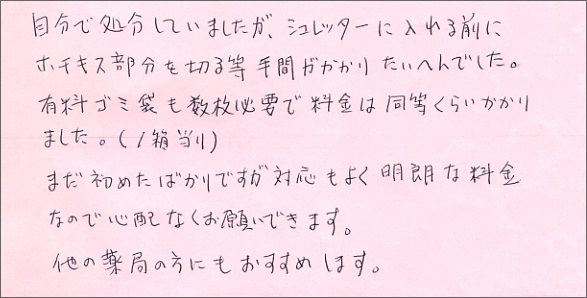 自分で処分していましたが、シュレッターに入れる前に
ホチキス部分を切る等手間がかかりたいへんでした。
有料ゴミ袋も数枚必要で料金は同等くらいかかり
ました。(1箱当り)
まだ初めたばかりですが対応もよく明朗な料金
なので心配なくお願いできます。
他の薬局の方にもおすすめします。